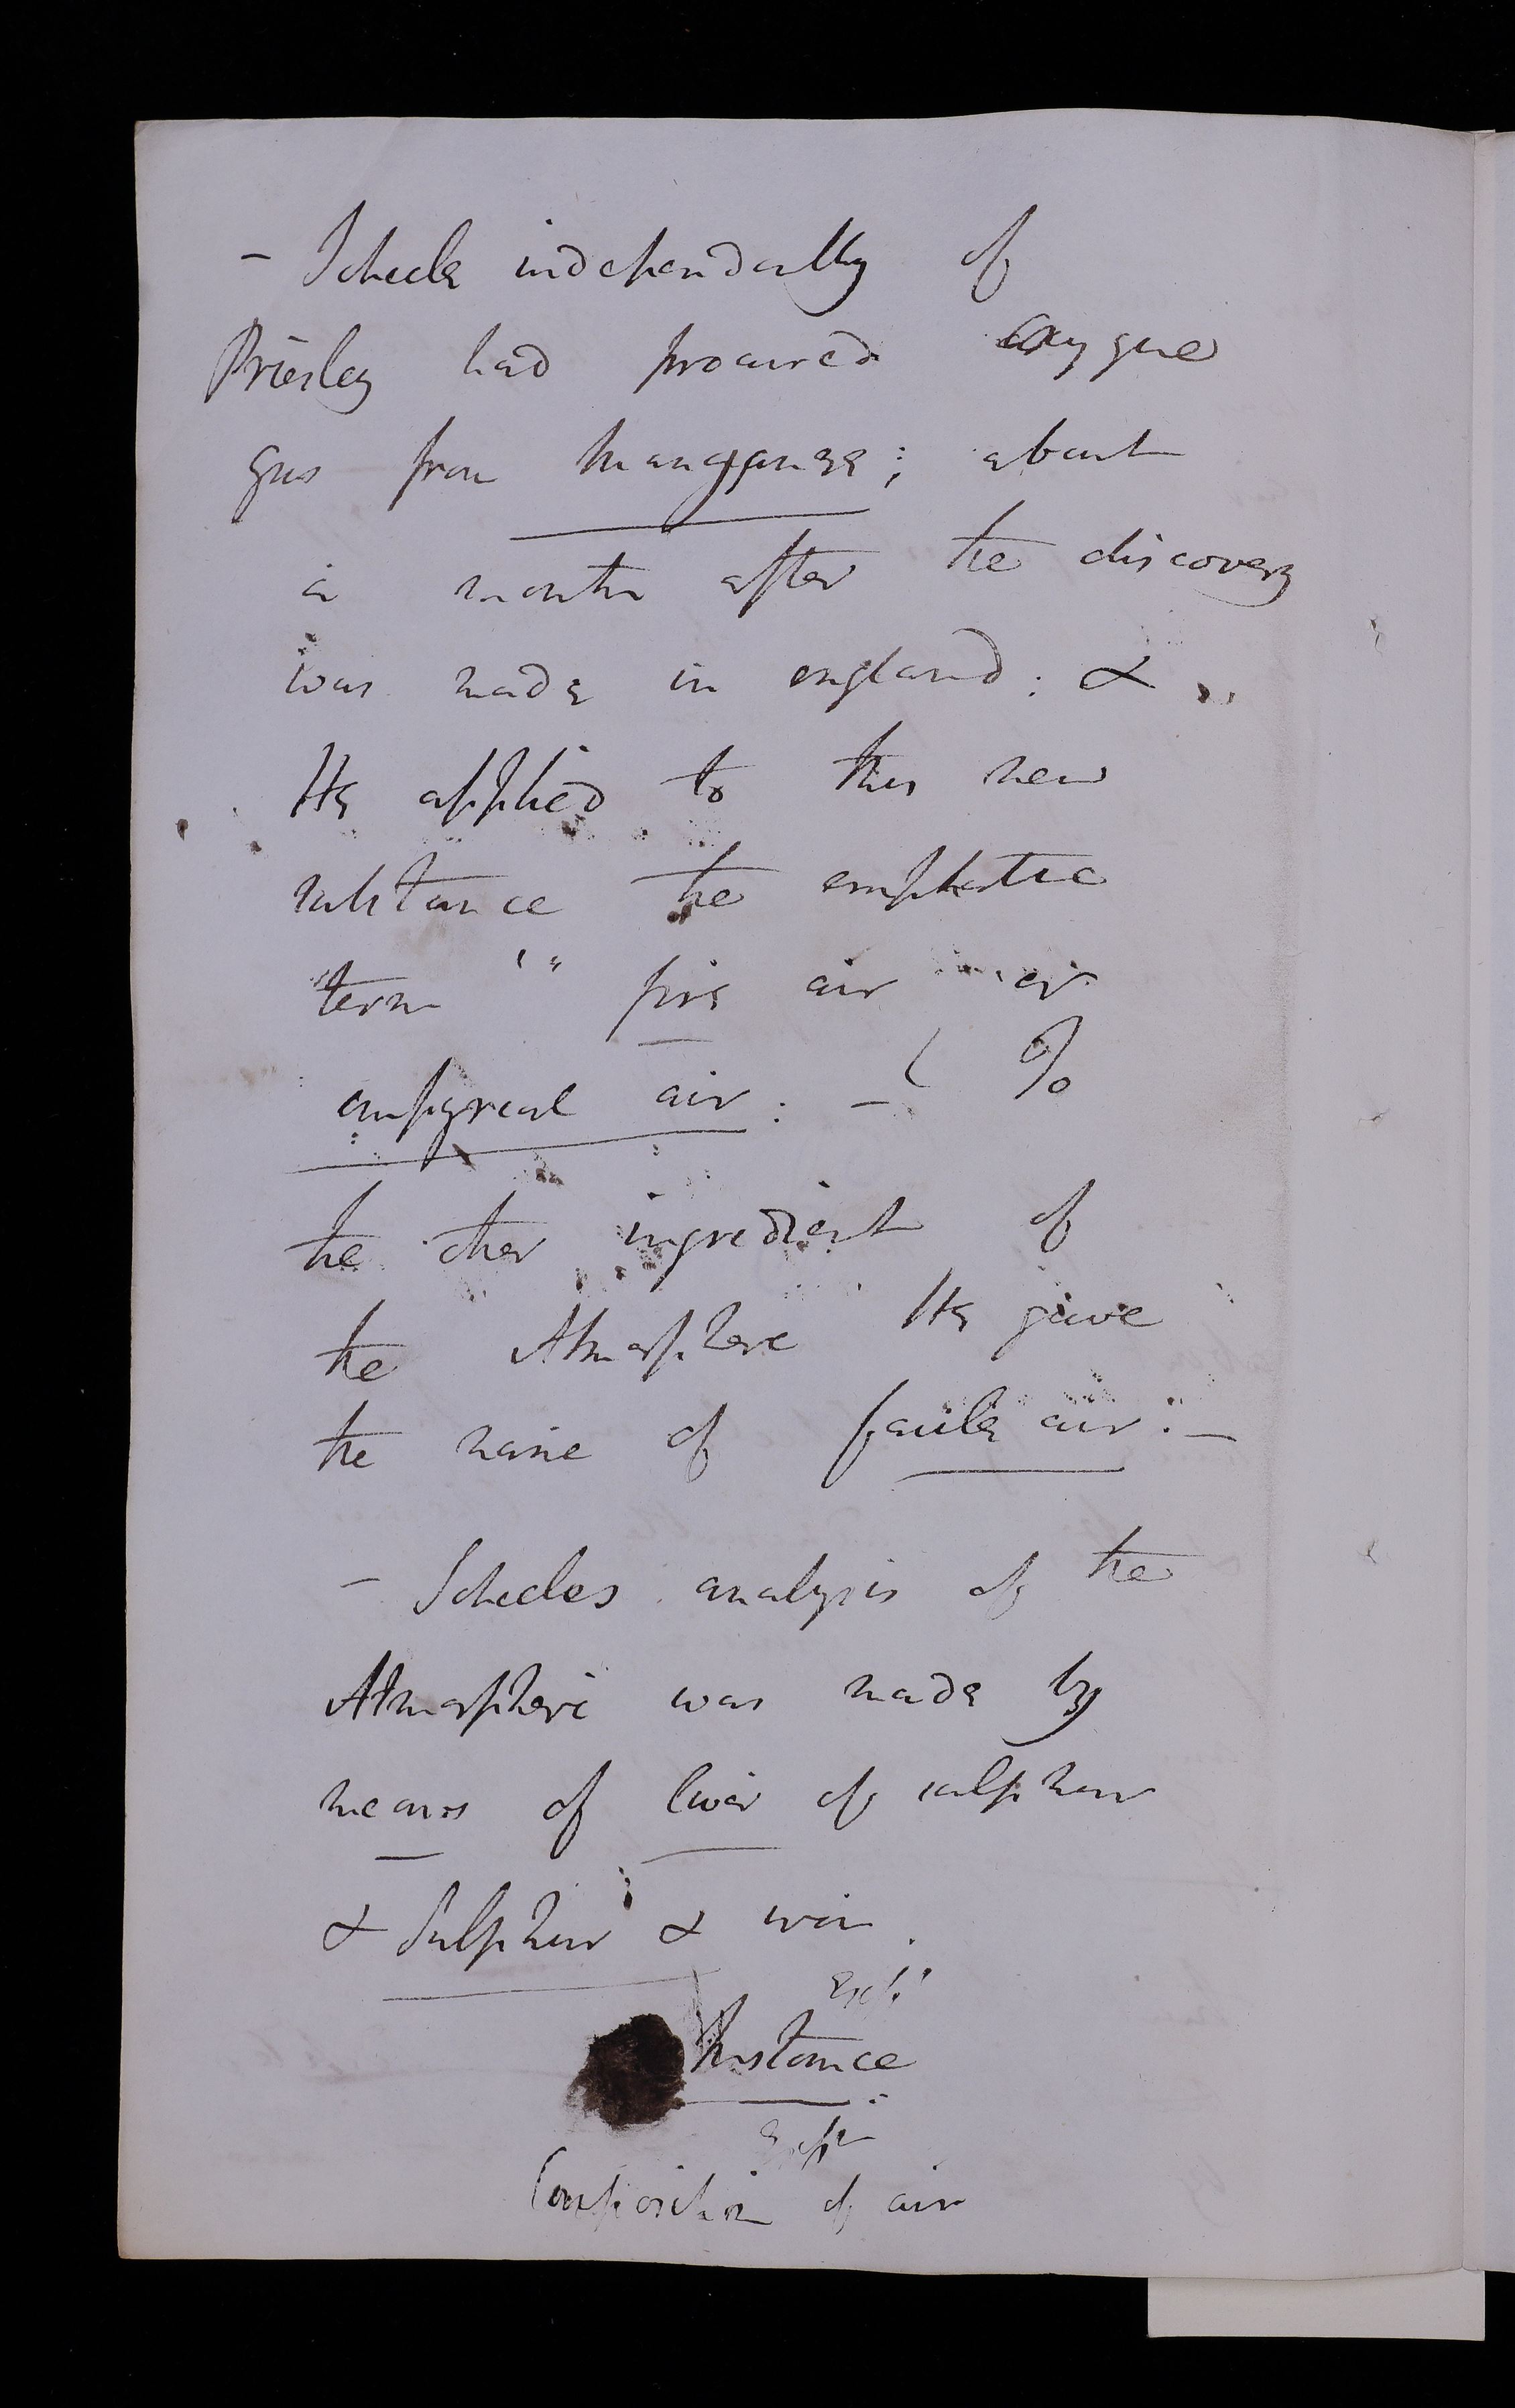 - Scheele independently of
Priesley had procured oxygene
gas from manganese; about
a month after the discovery
was made in england: &
He applied to this new
substance the emphatic
term " fire air or
empyreal air: - (
the other ingredient of
the Atmosphere He gave
the name of foule air: -
- Scheeles analysis of the
Atmosphere was made by
means of liver of sulphur
& Sulphur & iron.
Expt.
Instance
Expt
Composition of air